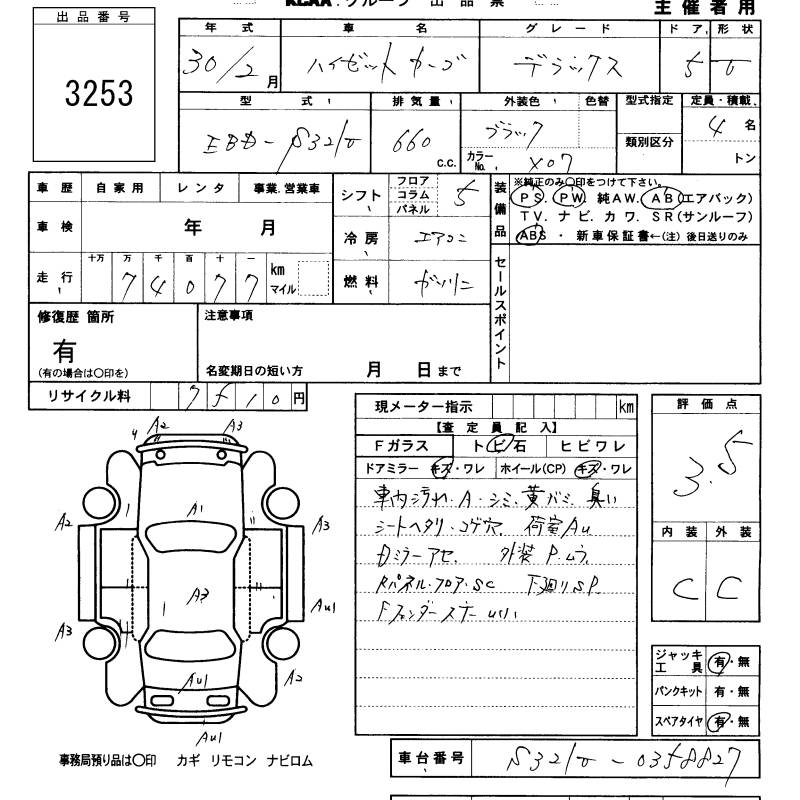 KCAA.グループ 出品票
主催者用
出品番号
3253
年式 車名 グレード ドア 形状
30/2月 ハイゼットカーゴ デラックス 5 V
型式 排気量 外装色 色替 型式指定 定員・積載
EBD-S321V 660 c.c. ブラック 類別区分 4名
カラーNo. X07 トン
車歴 自家用 レンタ 事業.営業車 シフト フロア コラム パネル 5
車検 年 月 冷房 エアコン
走行 十万 万 千 百 十 一
74077 km マイル 燃料 ガソリン
装備品
※純正のみ○印をつけて下さい。
PS. PW. 純AW. AB(エアバック)
TV. ナビ. カワ. SR(サンルーフ)
ABS ・ 新車保証書←(注) 後日送りのみ
セールスポイント
修復歴 箇所 注意事項
有
(有の場合は○印を) 名変期日の短い方 月 日まで
リサイクル料 7510円
現メーター指示 km
【査定員記入】
Fガラス トビ石 ヒビワレ
ドアミラー キズ・ワレ ホイール(CP) キズ・ワレ
車内汚れ・A・シミ 黄バミ 臭い
シートヘタリ・コゲ穴 荷室AU
Dミラーアセ 外装P.ムラ
Rパネル・フロア・SC 下廻りSP
Fフェンダーステー
評価点
3.5
内装 外装
C C
ジャッキ工具 有・無
パンクキット 有・無
スペアタイヤ 有・無
A2 A3
A1
A2 A3
A3
AU1
A3
A2
AU1
AU1
事務局預り品は○印 カギ リモコン ナビロム
車台番号 S321V-0358827